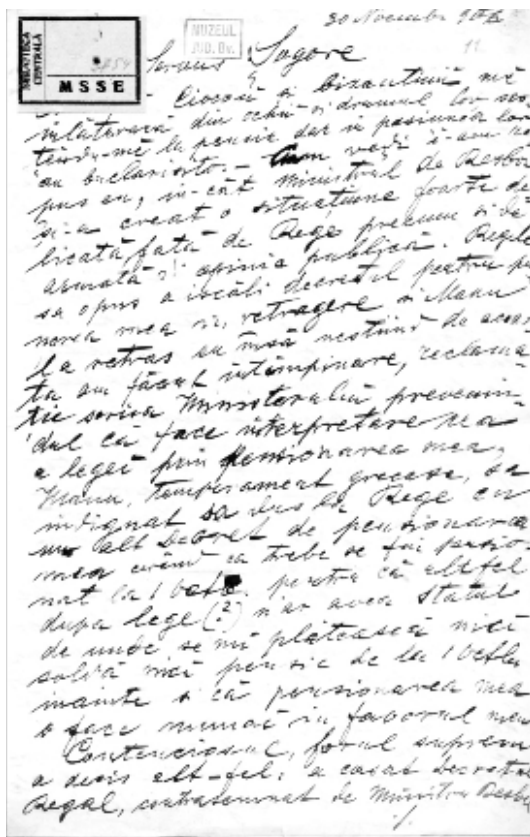 30 Novembre 906
MUZEUL
JUD. Bv.
11
BIBLIOTECA
CENTRALĂ
MSSE
Sogore
Ciocoii și bizantinii mă
înlăturară din ochii și drumul lor
la pensie dar in pasiunea lor
au vezi s-au
pus eu, in cât Ministrul de Resboi
și-a creat o situațiune foarte de
licată față de Rege precum și de
armată și opinia publică. Regele
sa opus a iscăli decretul pentru pu
nerea mea in retragere si Manu
la retras eu însă neștiind de acea
ta am făcut intâmpinare, reclama
ție scrisa Ministerului
dul că face interpretare rea
a legei prin pensionarea mea,
Manu, temperament grecesc, sa
indignat sa dus la Rege cu
un alt decret de pensionarea
mea ca trebe se fiu pensio
nat la 1 Octb. pentru că altfel
dupa lege (?) n'ar avea Statul
de unde se mi plătească nici
soldă nici pensie de la 1 Octbr
inainte si că pensionarea mea
o face numai in favorul meu
Contenciosul, forul suprem
a decis alt-fel: a casat decretul
Regal, contrasemnat de Ministru Resboi